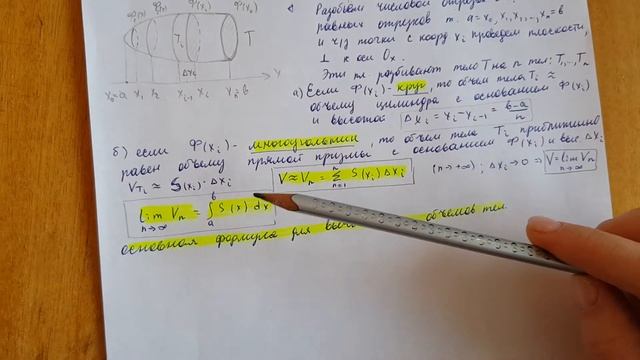 Φ(x₁) Φ(xᵢ) Φ(xₙ)
Tᵢ T
Δxᵢ
x₀=a x₁ x₂ xᵢ₋₁ xᵢ xₙ=b
Разобьем числовой отрезок
равных отрезков т. a=x₀, x₁, xₙ=b
и ч/з точки с коорд xᵢ проведем плоскости,
⊥ к оси Ox.
Эти пл разбивают тело T на n тел: T₁,...,Tₙ
а) Если Φ(xᵢ)- круг, то объем тела Tᵢ ≈
объему цилиндра с основанием Φ(xᵢ)
и высотой Δxᵢ = xᵢ-xᵢ₋₁ = (b-a)/n
б) если Φ(xᵢ)- многоугольник, то объем тела Tᵢ приближенно
равен объему прямой призмы с основанием Φ(xᵢ) и выс. Δxᵢ
V_Tᵢ ≈ S(xᵢ)·Δxᵢ V≈Vₙ = ∑ⁿₙ₌₁ S(xᵢ)Δxᵢ (n→+∞); Δxᵢ→0 ⇒ V=lim Vₙ n→∞
lim Vₙ n→∞ = ∫ₐᵇ S(x) dx
основная формула для объемов тел.